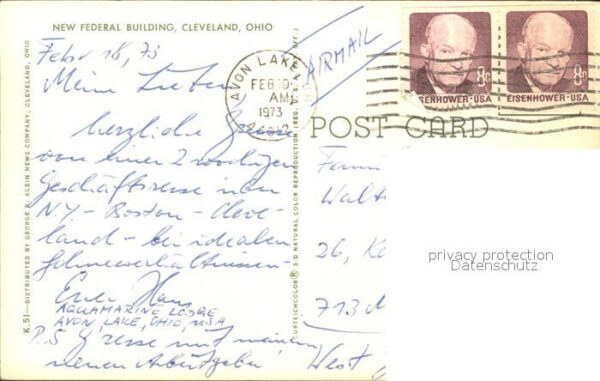 NEW FEDERAL BUILDING, CLEVELAND, OHIO
Febr 18, 73
Meine Lieben,
herzliche Grüsse
von einer 2 wöchigen
Geschäftsreise von
N.Y. - Boston - Cleve-
land - bei idealen
Schneeverhältnissen -
Euer Hans
AQUAMARINE LODGE
AVON LAKE, OHIO, USA
P.S. Grüsse mit meinem
neuen Arbeitgeber!
K 51—DISTRIBUTED BY GEORGE R. KLEIN NEWS COMPANY, CLEVELAND, OHIO
CURTEICHCOLOR® 3-D NATURAL COLOR REPRODUCTION (REG. U.S.A. PAT. OFF.)
AIRMAIL
AVON LAKE
FEB 19
AM
1973
8c
EISENHOWER·USA
8c
EISENHOWER·USA
POST CARD
Fam
Walt
26, K
713 M
West
privacy protection
Datenschutz